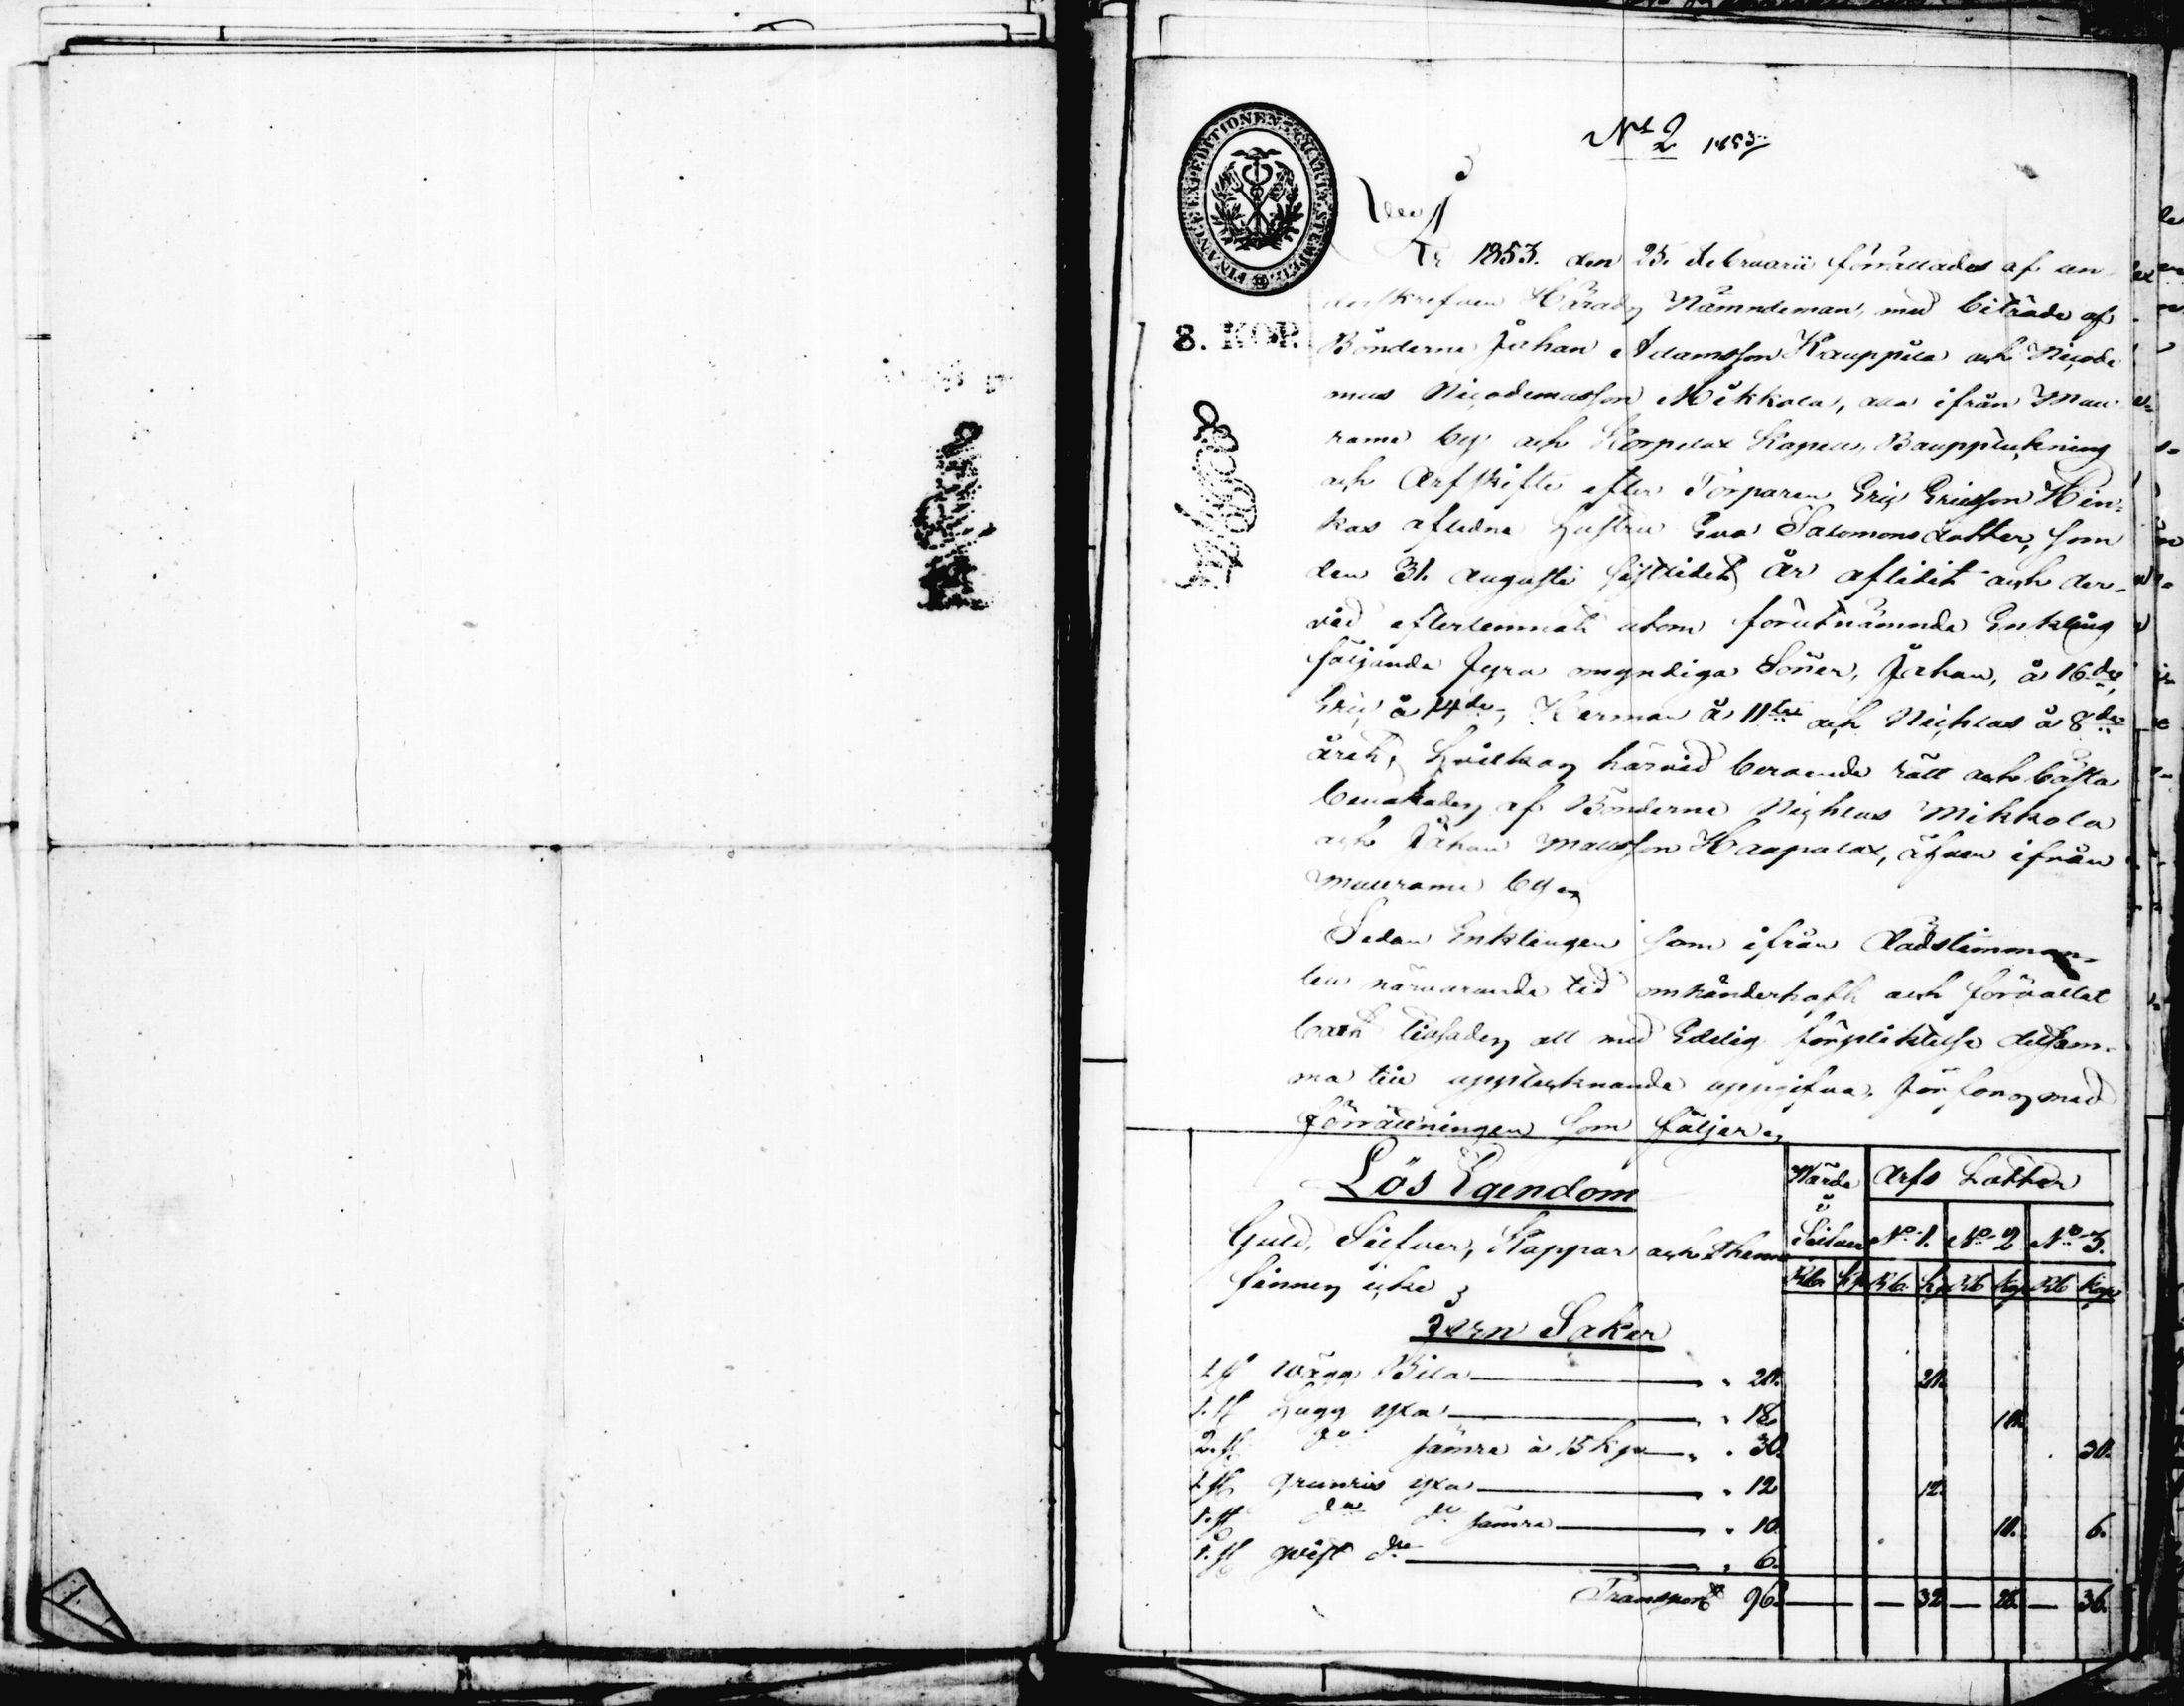 No 2 1853
FINANCE EXPEDITIONENS CHART. STEMPEL
8. KOP.
År 1853. den 25. Februarii förrättades af un-
derskrefven Härads Nämndeman, med biträde af
Bönderne Johan Adamsson Kauppila och Nicode
mus Nicodemusson Mikkola, alla ifrån Mau-
rama by och Korpelax Kapell, Bouppteckning
och Arfskifte efter Torparen Eric Ericsson Hin-
kas afledne hustru Eva Salomonsdotter, som
den 31. Augusti sistledet år aflidit och der-
vid efterlemnat utom förutnämnde Enkling
följande fyra omyndiga Söner, Johan, å 16de,
Eric å 14de, Herman å 11te och Nichlas å 8de
året, hvilkas härvid beroende rätt och bästa
bevakades af Bönderne Nichlas Mikkola
och Johan Matsson Haapalax, äfven ifrån
Maurama by
Sedan Enklingen som ifrån dödstimman
till närvarande tid omhänderhaft och förvaltat
boet tillsades att med Edelig förpliktelse detsam-
ma till upptecknande uppgifva, förfors med
förrättningen som följer
Lös Egendom
Wärde i Silfver Arfs Lotter
No 1. No 2 No 3.
Rb. Kp Rb. Kp Rb Kop Rb Kop
Guld, Silfver, Koppar och Thenn
finnes icke
Jern Saker
1. st wägg Bila 20. 20.
1. st hugg yxa 18. 18.
2. st do sämre à 15 kop 30. 30.
1. st yxa 12 12.
1. st do do sämre 10. 10.
1. st qvist do 6. 6.
Transport 96. 32 28. 36.